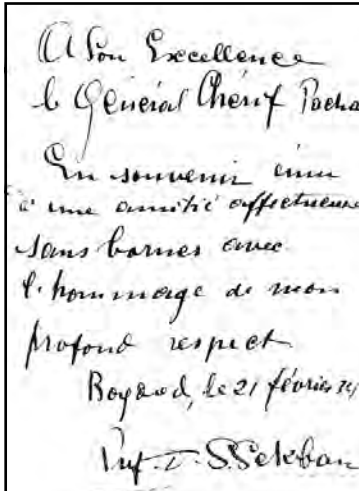 A Son Excellence
le Général Chérif Pacha
En souvenir ému
d'une amitié affectueuse
sans bornes avec
l'hommage de mon
profond respect
le 21 février
Prof. D. S.